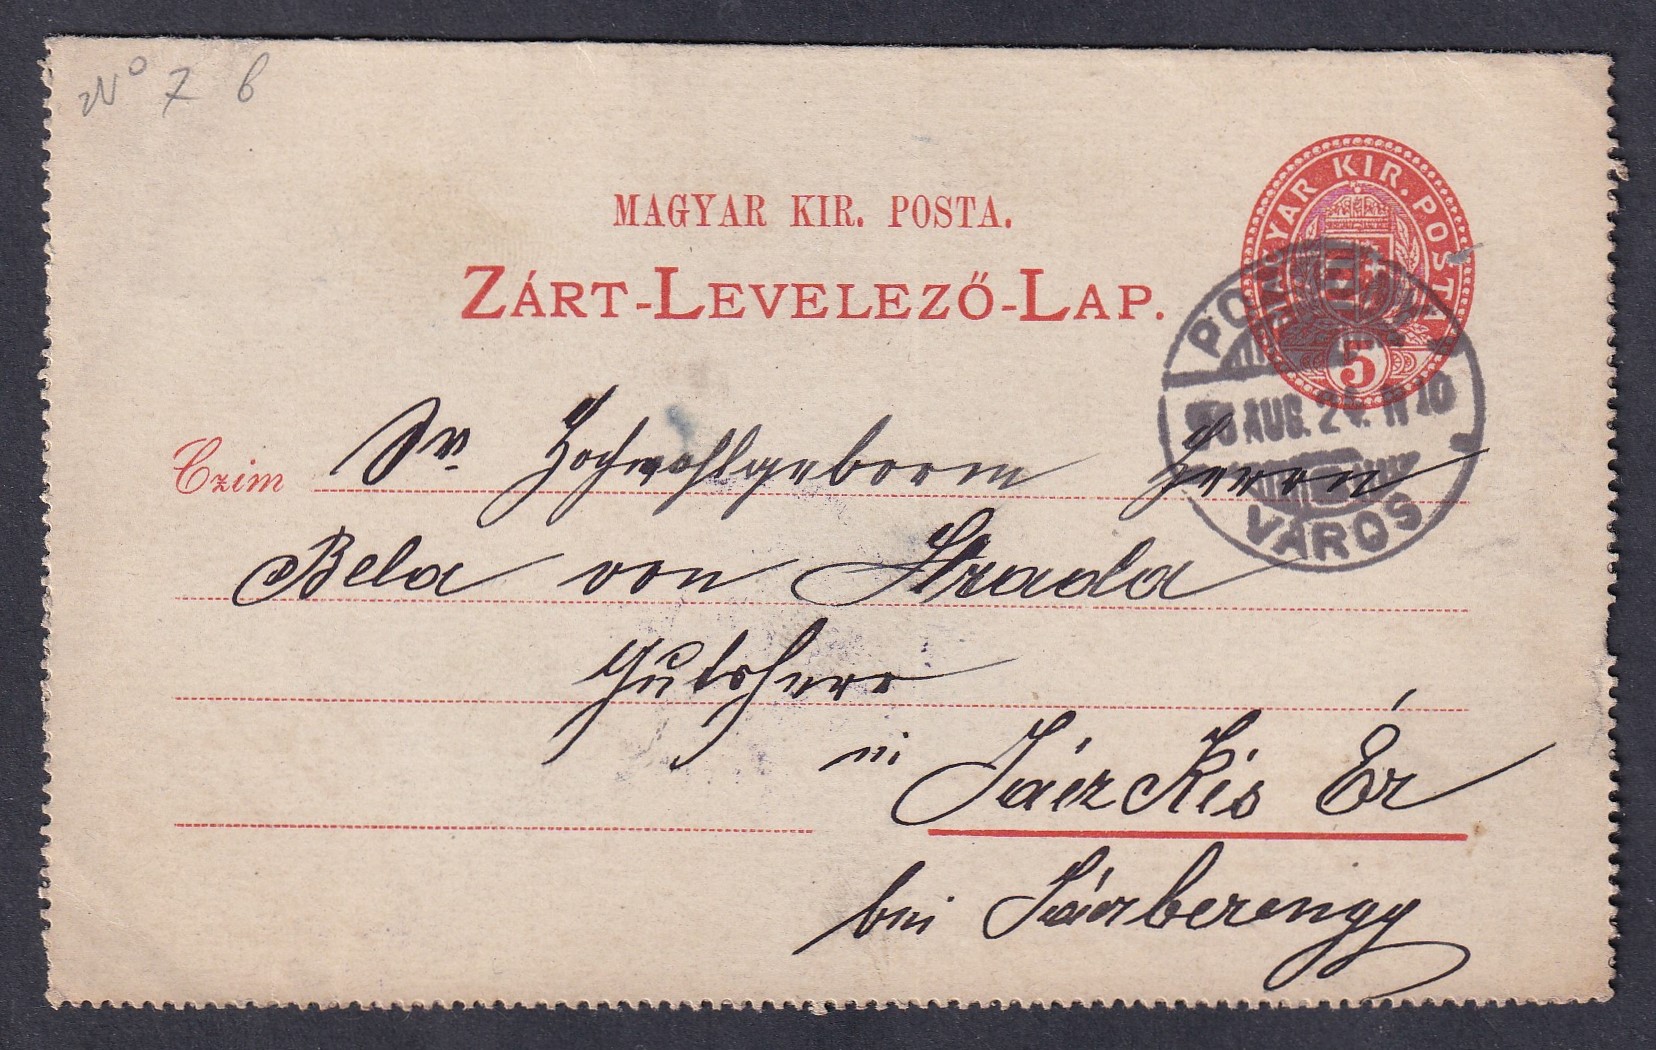 No 7 b
MAGYAR KIR. POSTA.
ZÁRT-LEVELEZŐ-LAP.
MAGYAR KIR. POSTA
5
AUG. 24. N 10
VÁROS
Czim Sr. Hochwohlgeboren Herrn
Bela von Strada
Gutsherr
in
Kis Ér
bei Sárberengy